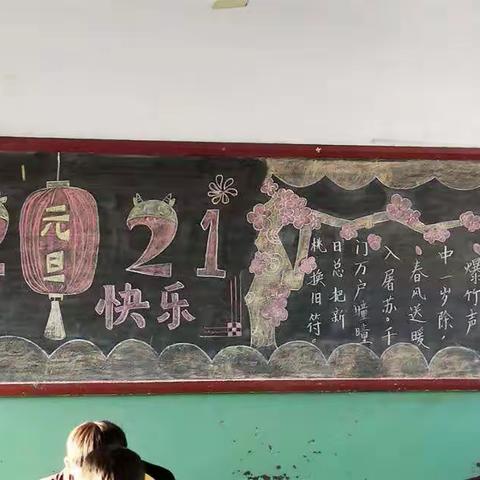 2
元旦
21
快乐
爆竹声
中一岁除，
春风送暖
入屠苏。千
门万户曈曈
日总把新
桃换旧符。